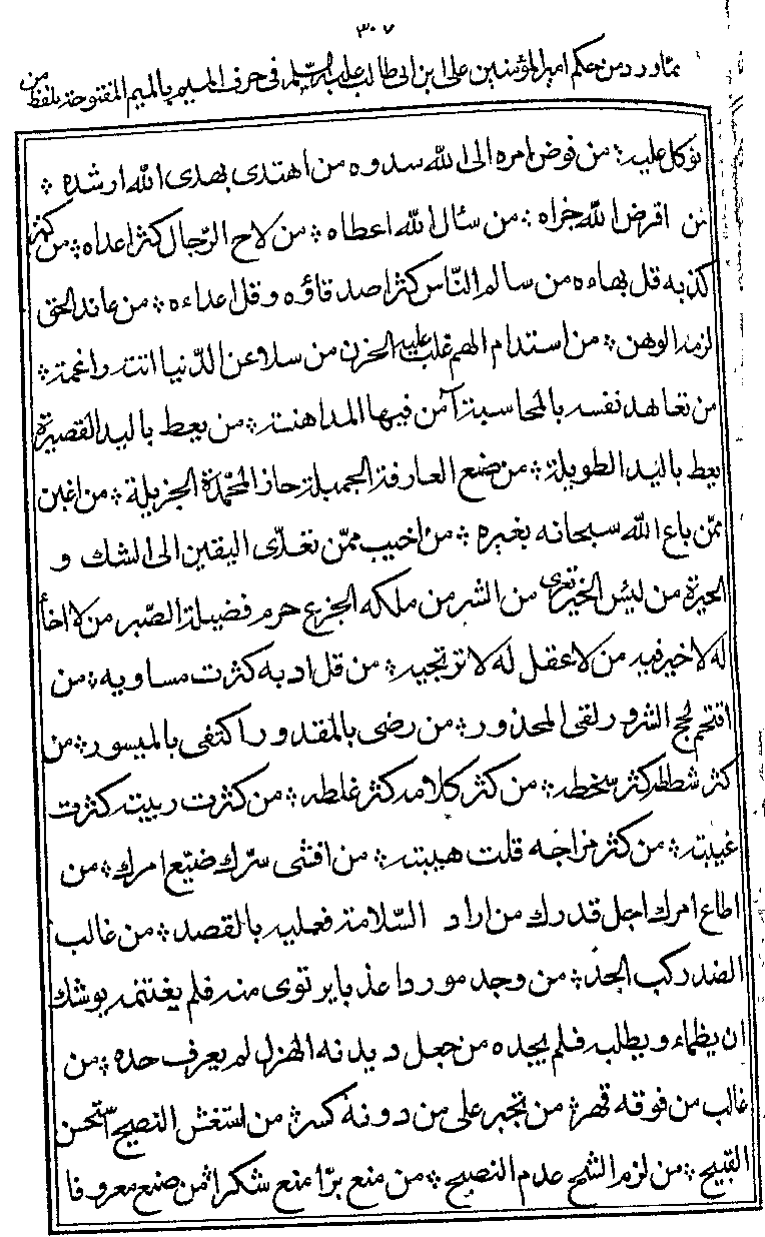 ٣٠٧
مما ورد من حكم امير المؤمنين علی ابن ابی طالب عليه السلام فی حرف الميم بالميم المفتوحة بلفظ من
توكل عليه ؛ من فوض امره الی الله سدده من اهتدی بهدی الله ارشده ؛
من اقرض الله جزاه ؛ من سئال الله اعطاه ؛ من لاح الرّجال كثر اعداه ؛ من كثر
كذبه قل بهاءه من سالم النّاس كثر اصدقاؤه و قل اعداءه ؛ من عاند الحق
لزمه الوهن ؛ من استدام الهم غلب عليه الحزن من سلا عن الدّنيا اتته راغمة ؛
من تعاهد نفسه بالمحاسبة آمن فيها المداهنة ؛ من يعط باليد القصيرة
يعط باليد الطويلة ؛ من صنع العارفة الجميلة حاز المحمّدة الجزيلة ؛ من اغبن
ممّن باع الله سبحانه بغيره ؛ من اخيب ممّن تعدّی اليقين الی الشك و
الحيرة من لبس الخير تعری من الشر من ملكه الجزع حرم فضيلة الصّبر من لا اخا
له لا خير فيه من لا عقل له لا ترتجيه ؛ من قل ادبه كثرت مساويه ؛ من
اقتحم لجج الشرور لقی المحذور ؛ من رضی بالمقدور اكتفی بالميسور ؛ من
كثر شططه كثر سخطه ؛ من كثر كلامه كثر غلطه ؛ من كثرت ريبته كثرت
غيبته ؛ من كثر مزاحه قلت هيبته ؛ من افشی سرّك ضيّع امرك ؛ من
اطاع امرك اجل قدرك من اراد السّلامة فعليه بالقصد ؛ من غالب
الضد ركب الجد ؛ من وجد موردا عذبا يرتوی منه فلم يغتنمه يوشك
ان يظماء و يطلبه فلم يجده من جعل ديدنه الهزل لم يعرف حده ؛ من
غالب من فوقه قهر ؛ من تجبر علی من دونه كسر ؛ من استغش النصيح استحسن
القبيح ؛ من لزم الشح عدم النصيح ؛ من منع برّا منع شكرا ؛ من صنع معروفا